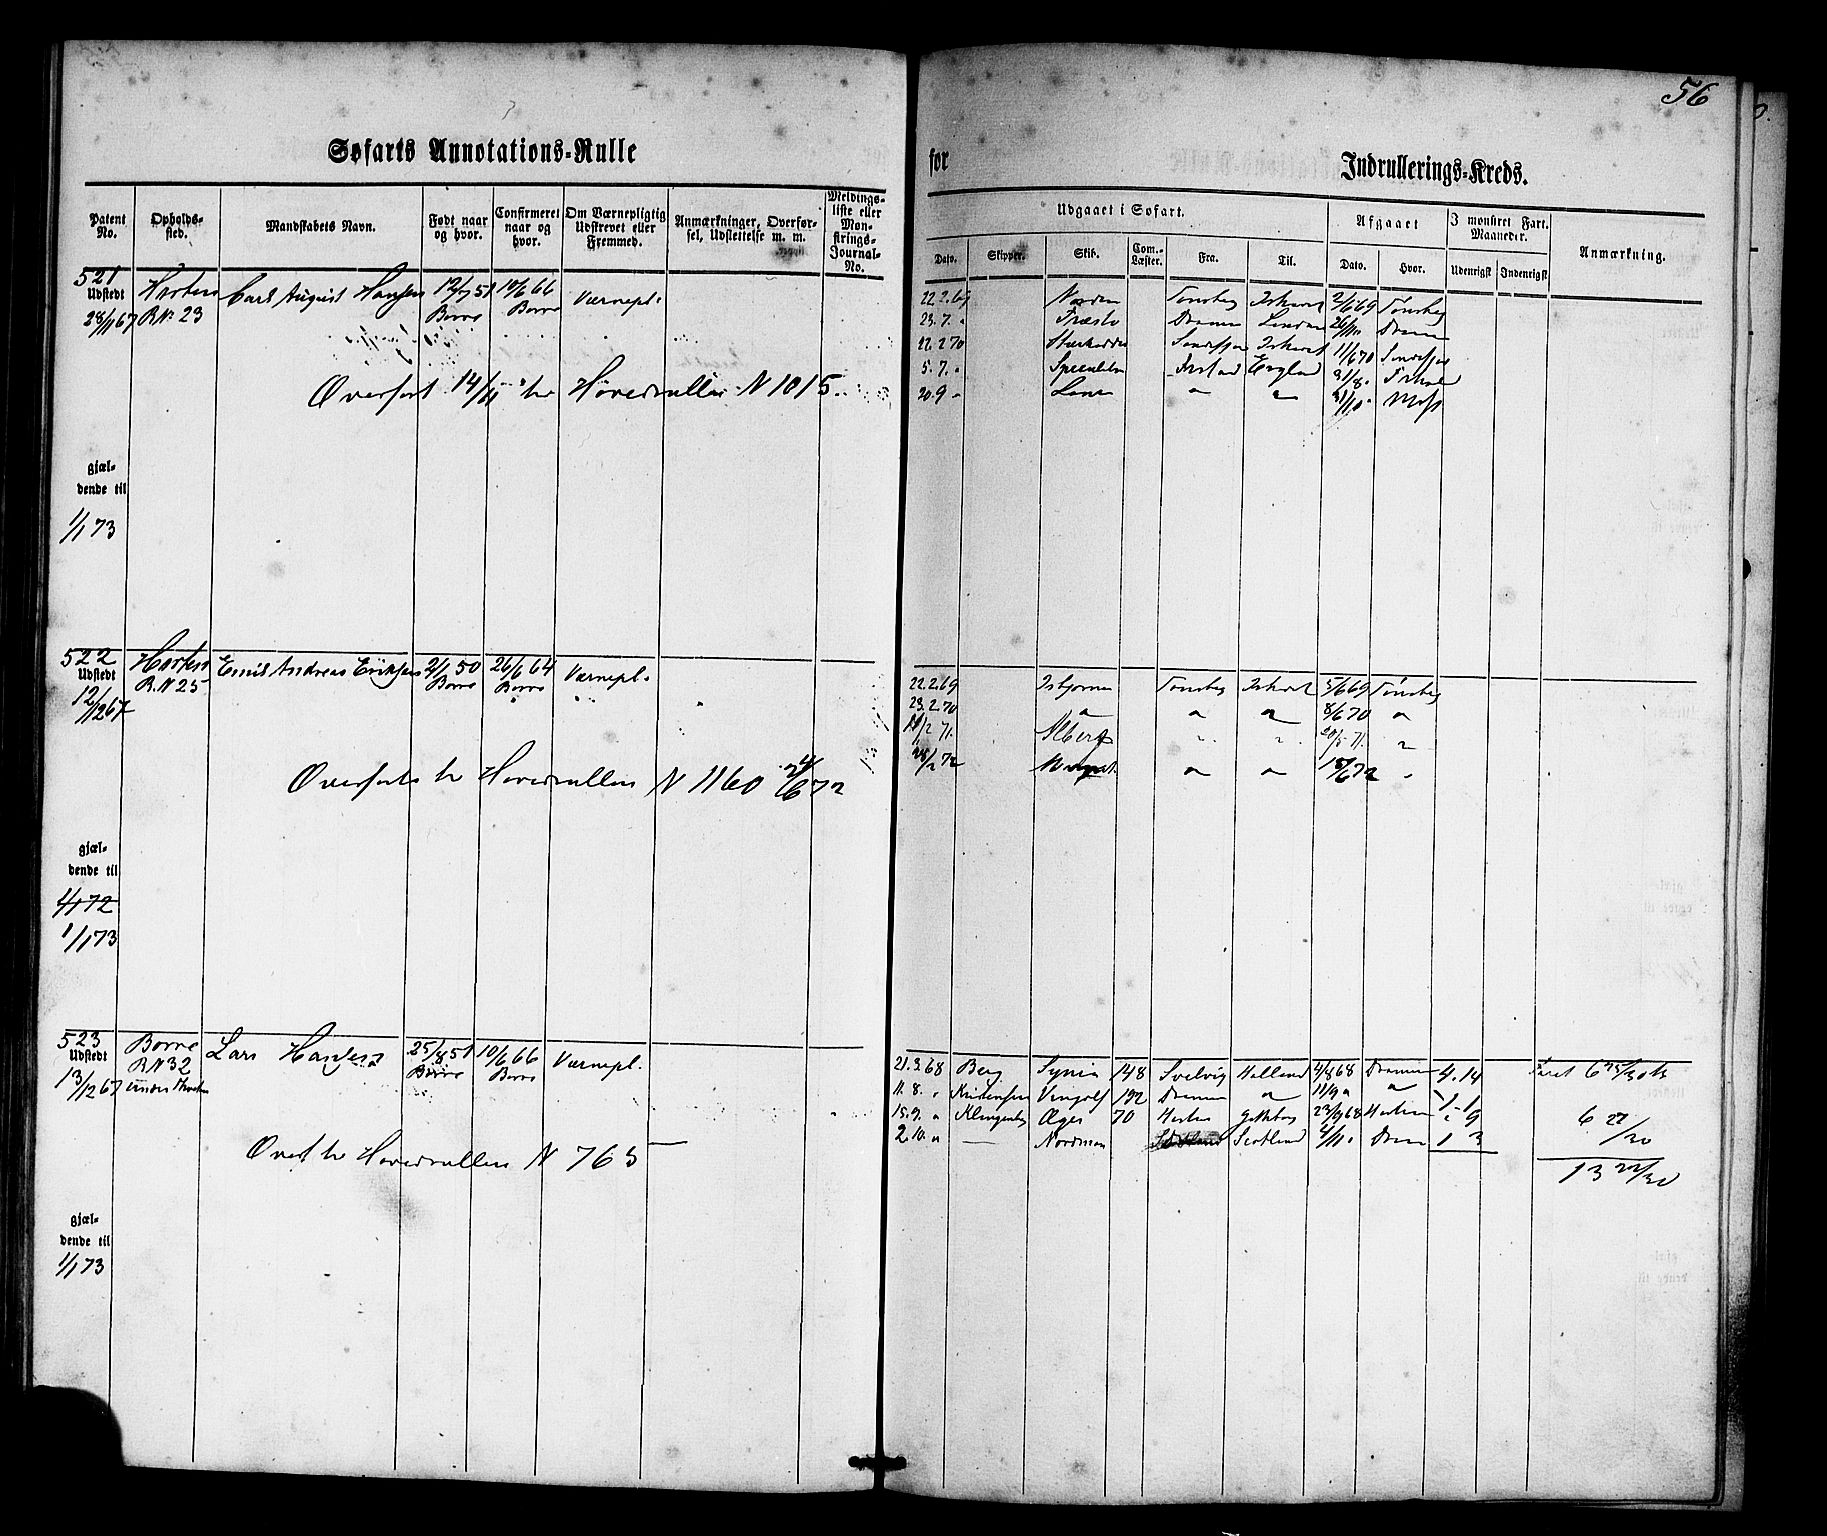 56
Søfarts Annotations-Rulle
for
Indrullerings-Kreds.
Patent No.
Opholds-sted.
Mandskabets Navn.
Født naar og hvor.
Confirmeret naar og hvor.
Om Værnepligtig Udskrevet eller Fremmed.
Anmærkninger, Overførsel, Udslettelse m. m.
Meldingsliste eller Mønstrings-Journal-No.
Udgaaet i Søfart.
Afgaaet
I mønstret Fart. Maaneder.
Anmærkning.
Dato.
Skipper.
Skib.
Com.-Læster.
Fra.
Til.
Dato.
Hvor.
Udenrigst
Indenrigst
521 Horten Carl August Hansen 12/7 51 10/6 66 Værnepl.
Udstedt
28/11 67 R.No 23 Borre Borre
Overført 14/11 til Hovedrullen N 1015.
gjæl-
dende til
1/1 73
22.2.69 Norden Tønsberg Ishavet 2/6 69 Tønsberg
23.7. " Dramen London 26/10 Dramen
22.2 70 Ishavet 11/6 70
5.7. " England 31/8
20.9 " 31/10 Moss
522 Horten Emil Andreas Eriksen 2/1 50 26/6 64 Værnepl.
Udstedt
12/12 67 R.N 25 Borre Borre
Overført til Hovedrullen N 1160 24/6 72
gjæl-
dende til
1/1 72
1/1 73
22.2.69 Isbjørnen Tønsberg Ishavet 5/6 69 Tønsberg
23.2.70 " " " 8/6 70 "
Albert " " 20/5 71. "
28/2 72 " " 15/6 72 "
523 Borre Lars Hansen 25/8 51 10/6 66 Værnepl.
Udstedt
13/12 67 R.N 32 Borre Borre
Overf til Hovedrullen N 765
gjæl-
dende til
1/1 73
21.3.68 Berg Syria 148 Svelvig Holland 4/8 68 Dramen 4.14
11.8. " Kristensen Vingolf 192 Dramen " 11/9 " " 1.1
15.9. " Klingenberg Æger 70 Horten 23/9 68 Horten " 9
2.10. " — Nordman Scotland 4/11 Dramen 1 3
6 27/30
13 22/30